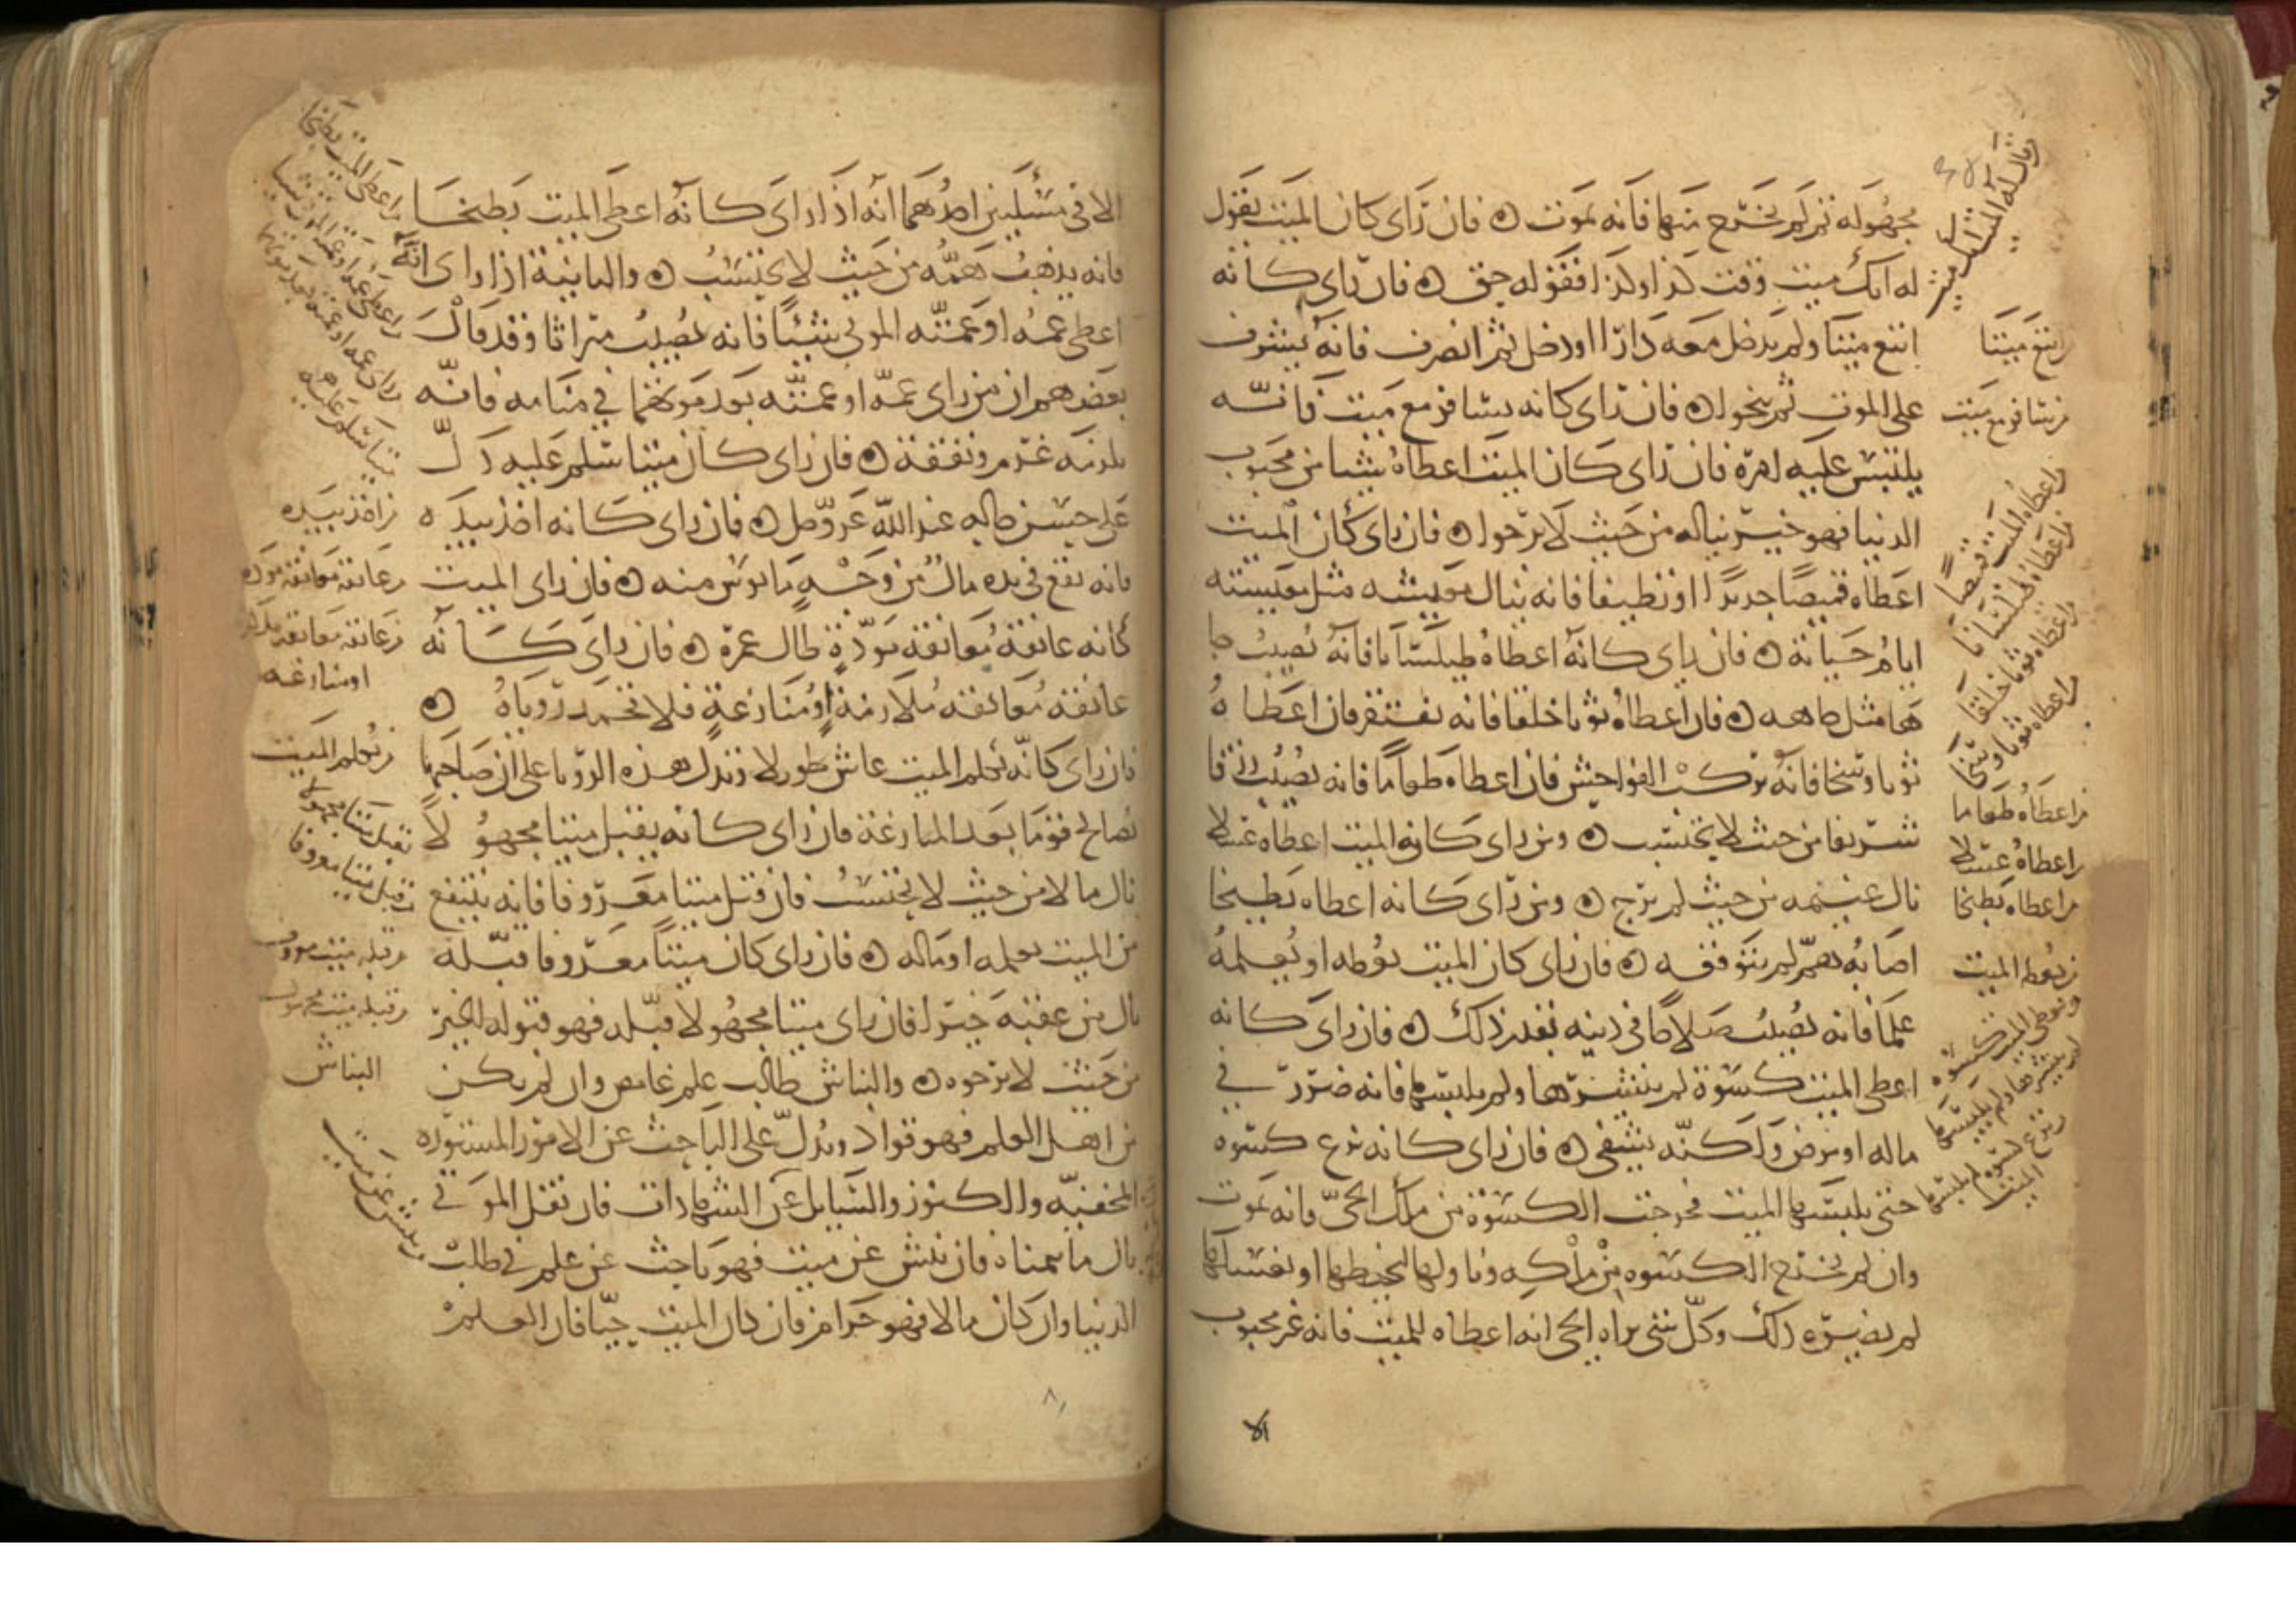 مجهوله ثم لم يخرج منها فانه يموت ه فان راى كان الميت يقول
له انك ميت وقت كذا وكذا فقوله حق ه فان راى كانه
اتبع ميتا ولم يدخل معه دارا او دخل ثم انصرف فانه يشرف
على الموت ثم ينجوا ه فان راى كانه يسافر مع ميت فانه
يلتبس عليه امره فان راى كان الميت اعطاه شيئا من محبوب
الدنيا فهو خير يناله من حيث لا يرجوا ه فان راى كان الميت
اعطاه قميصا جديدا او نظيفا فانه ينال معيشه مثل معيشته
ايام حياته ه فان راى كانه اعطاه طيلسانا فانه يصيب جا
ها مثل جاهه ه فان اعطاه ثوبا خلقا فانه يفتقر فان اعطاه
ثوبا وسخا فانه يركب الفواحش فان اعطاه طعاما فانه يصيب رزقا
شريفا من حيث لا يحتسب ه ومن راى كانه الميت اعطاه عسلا
نال غنيمه من حيث لم يرج ه ومن راى كانه اعطاه بطيخا
اصابه هم لم يتوقعه ه فان راى كان الميت يعظه او يعلمه
علما فانه يصيب صلاحا في دينه بقدر ذلك ه فان راى كانه
اعطى الميت كسوة لم ينشرها ولم يلبسها فانه ضرر في
ماله او مرض ولكنه يشفى ه فان راى كانه نزع كسوه
حتى يلبسها الميت فخرجت الكسوة من ملك الحي فانه يموت
وان لم تخرج الكسوه من ملكه وناولها ليخيطها او يغسلها
لم يضره ذلك وكل شى يراه الحي انه اعطاه للميت فانه غير محبوب
الا
وقال له الميت
اتبع ميتا
يسافر مع ميت
اعطاه الميت قميصا
اعطاه طيلسانا
اعطاه ثوبا خلقا
اعطاه ثوبا وسخا
اعطاه طعاما
اعطاه عسلا
اعطاه بطيخا
يعظه الميت
الا في مسئلتين احدهما انه اذا راى كانه اعطى الميت بطيخا
فانه يذهب همه من حيث لا يحتسب ه والثانية اذا راى انه
اعطى عمه او عمته الموتى شيئا فانه يصيب ميراثا وقد قال
بعضهم ان من راى عمه او عمته بعد موتهما في منامه فانه
يلزمه غرم ونفقة ه فان راى كان ميتا سلم عليه دل
على حسن حاله عند الله عز وجل ه فان راى كانه اخذ بيده
فانه يقع في يده مال من وجه مايوس منه ه فان راى الميت
كانه عانقه معانقة مودة طال عمره ه فان راى كانه
عانقه معانقه ملازمة او منازعة فلا تحمد روياه ه
فان راى كانه يكلم الميت عاش طويلا وتدل هذه الرويا على ان صاحبها
يصالح قوما بعد المنازعة فان راى كانه يقبل ميتا مجهولا
نال مالا من حيث لا يحتسب فان قبل ميتا معروفا فانه ينتفع
من الميت بعلمه او ماله ه فان راى كان ميتا معروفا قبله
نال من عقبه خيرا فان راى ميتا مجهولا قبله فهو قبوله الخير
من حيث لا يرجوه ه والنباش طالب علم غامض وان لم يكن
من اهل العلم فهو قواد ويدل على الباحث عن الامور المستوره
المخفيه والكنوز والسايل عن الشهادات فان نقل الموتى
نال ما يتمناه فان نبش عن ميت فهو باحث عن علم في طلب
الدنيا وان كان مالا فهو حرام فان كان الميت حيا فان العلم
اعطى الميت بطيخا
اخذ بيده
عانقه معانقة مودة
او منازعه
يكلم الميت
يقبل ميتا مجهولا
قبل ميتا معروفا
قبله ميت معروف
قبله ميت مجهول
النباش